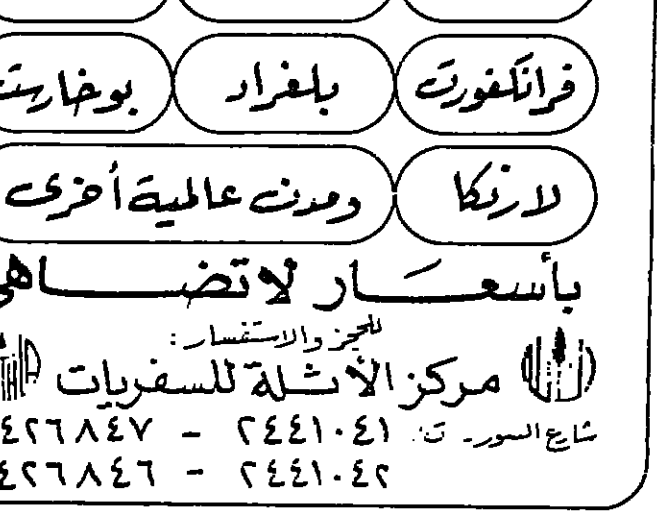 فرانكفورت بلغراد بوخارست
لارنكا ومدن عالمية أخرى
بأسعار لا تضاهى
للحجز والاستفسار:
مركز الأثلة للسفريات
شارع السور - ت: ٢٤٤١٠٤١ - ٤٢٦٨٤٧
٢٤٤١٠٤٢ - ٤٢٦٨٤٦